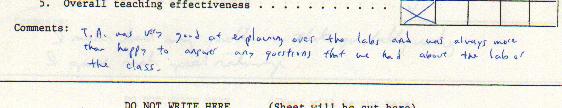 5. Overall teaching effectiveness . . . . . . . . . .
Comments: T.A. was very good at explaining over the labs and was always more
than happy to answer any questions that we had about the lab or
the class.
DO NOT WRITE HERE (Sheet will be cut here)